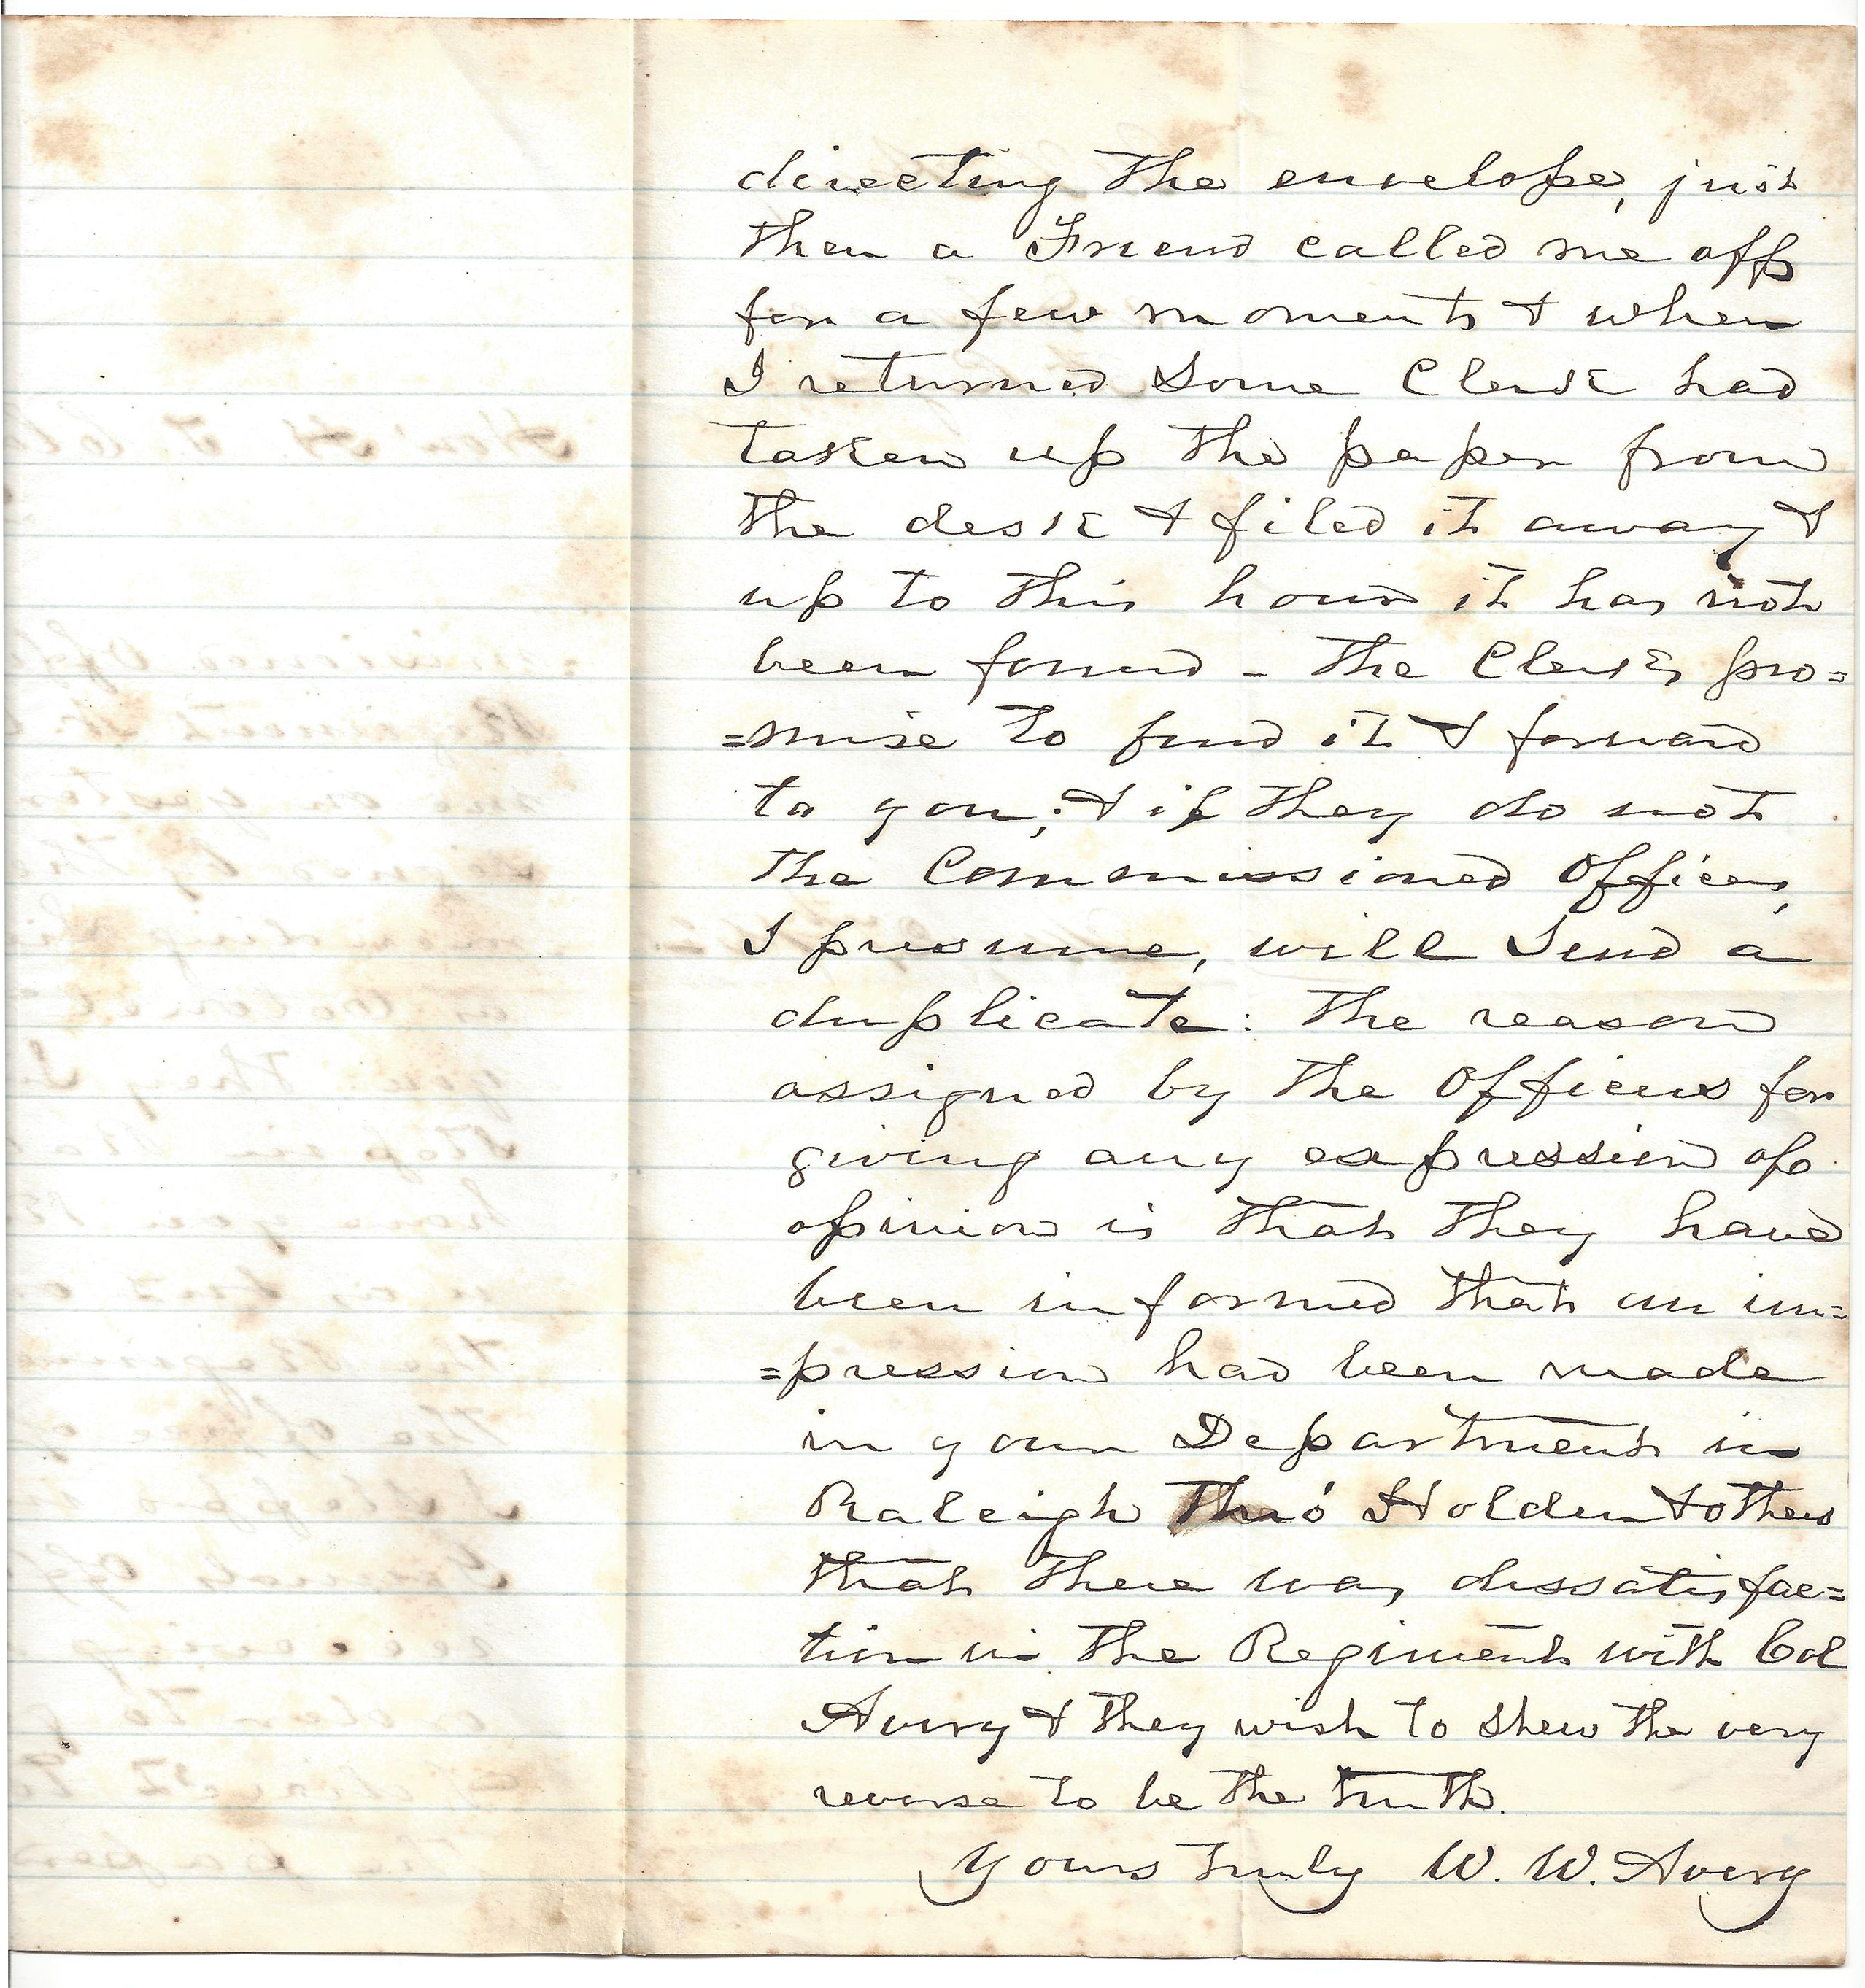 directing the envelope, just
then a Friend called me off
for a few moments & when
I returned some Clerk had
taken up the paper from
the desk & filed it away &
up to this hour it has not
been found - The Clerks pro=
=mise to find it & forward
to you; & if they do not
the Commissioned Officers,
I presume, will send a
duplicate: The reason
assigned by the Officers for
giving any expression of
opinion is that they have
been informed that an im=
=pression had been made
in your Department in
Raleigh thro' Holden & others
that there was dissatisfac=
tion in the Regiment with Col
Avery & they wish to shew the very
reverse to be the truth.
Yours truly W. W. Avery